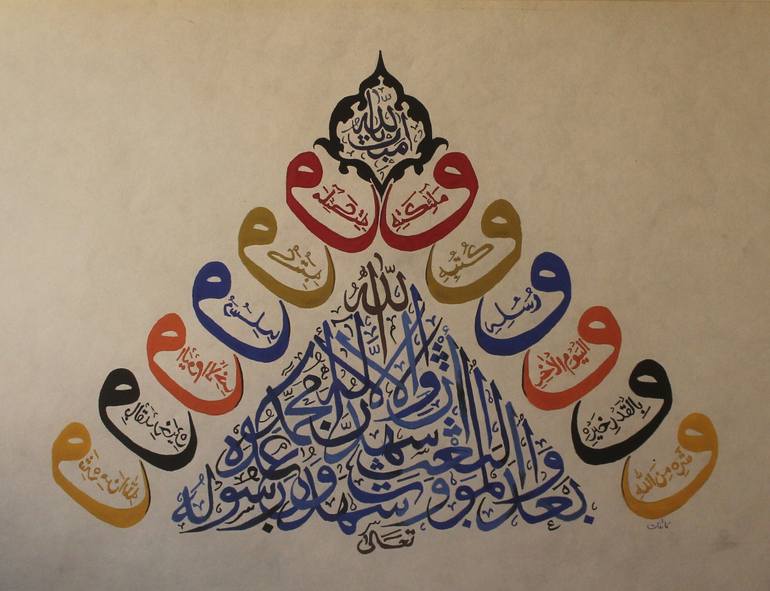 آمنت بالله
و ملائكته
و كتبه
و رسله
و اليوم الآخر
و بالقدر خيره
و شره من الله
تعالى
والبعث بعد الموت
أشهد أن لا إله إلا الله
وأشهد أن محمدا عبده ورسوله